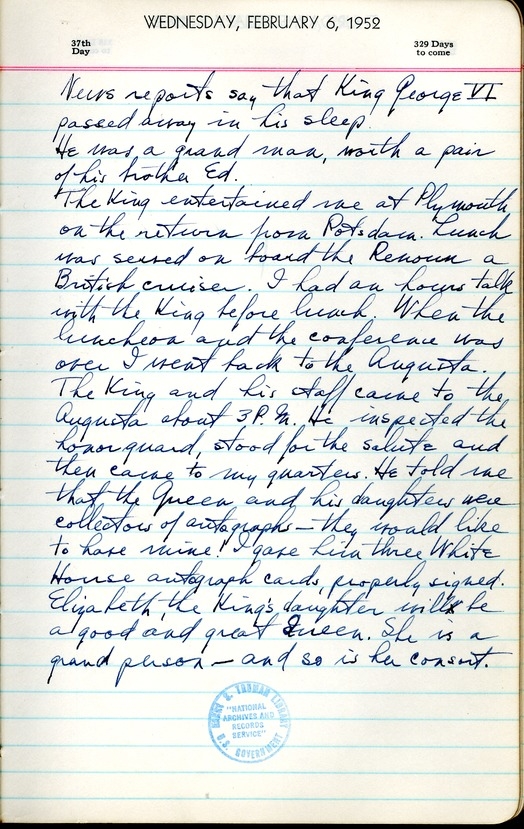 WEDNESDAY, FEBRUARY 6, 1952
37th
Day
329 Days
to come
News reports say that King George VI
passed away in his sleep.
He was a grand man, worth a pair
of his brother Ed.
The King entertained me at Plymouth
on the return from Potsdam. Lunch
was served on board the Renoun a
British cruiser. I had an hours talk
with the King before lunch. When the
luncheon and the conference was
over I went back to the Augusta.
The King and his staff came to the
Augusta about 3 P.M. He inspected the
honor guard, stood for the salute and
then came to my quarters. He told me
that the Queen and his daughters were
collectors of autographs—they would like
to have mine! I gave him three White
House autograph cards, properly signed.
Elizabeth, the King's daughter will be
a good and great Queen. She is a
grand person—and so is her consort.
HARRY S. TRUMAN LIBRARY
"NATIONAL
ARCHIVES AND
RECORDS
SERVICE"
U.S. GOVERNMENT